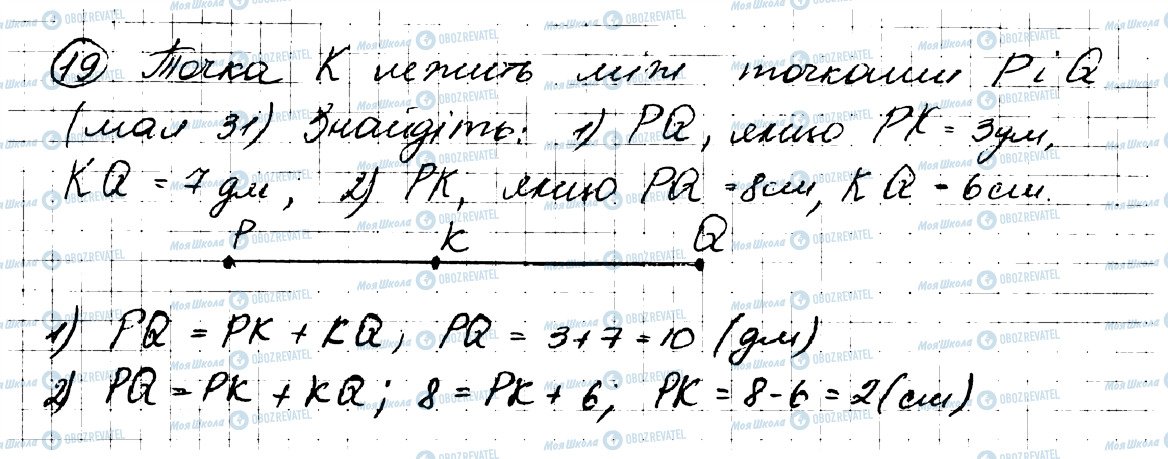 19 Точка К лежить між точками P і Q
(мал 31) Знайдіть: 1) PQ, якщо PK = 3дм,
KQ = 7 дм; 2) PK, якщо PQ = 8см, KQ = 6 см.
P K Q
1) PQ = PK + KQ; PQ = 3 + 7 = 10 (дм)
2) PQ = PK + KQ; 8 = PK + 6; PK = 8 - 6 = 2 (см)
МояШкола OBOZREVATEL